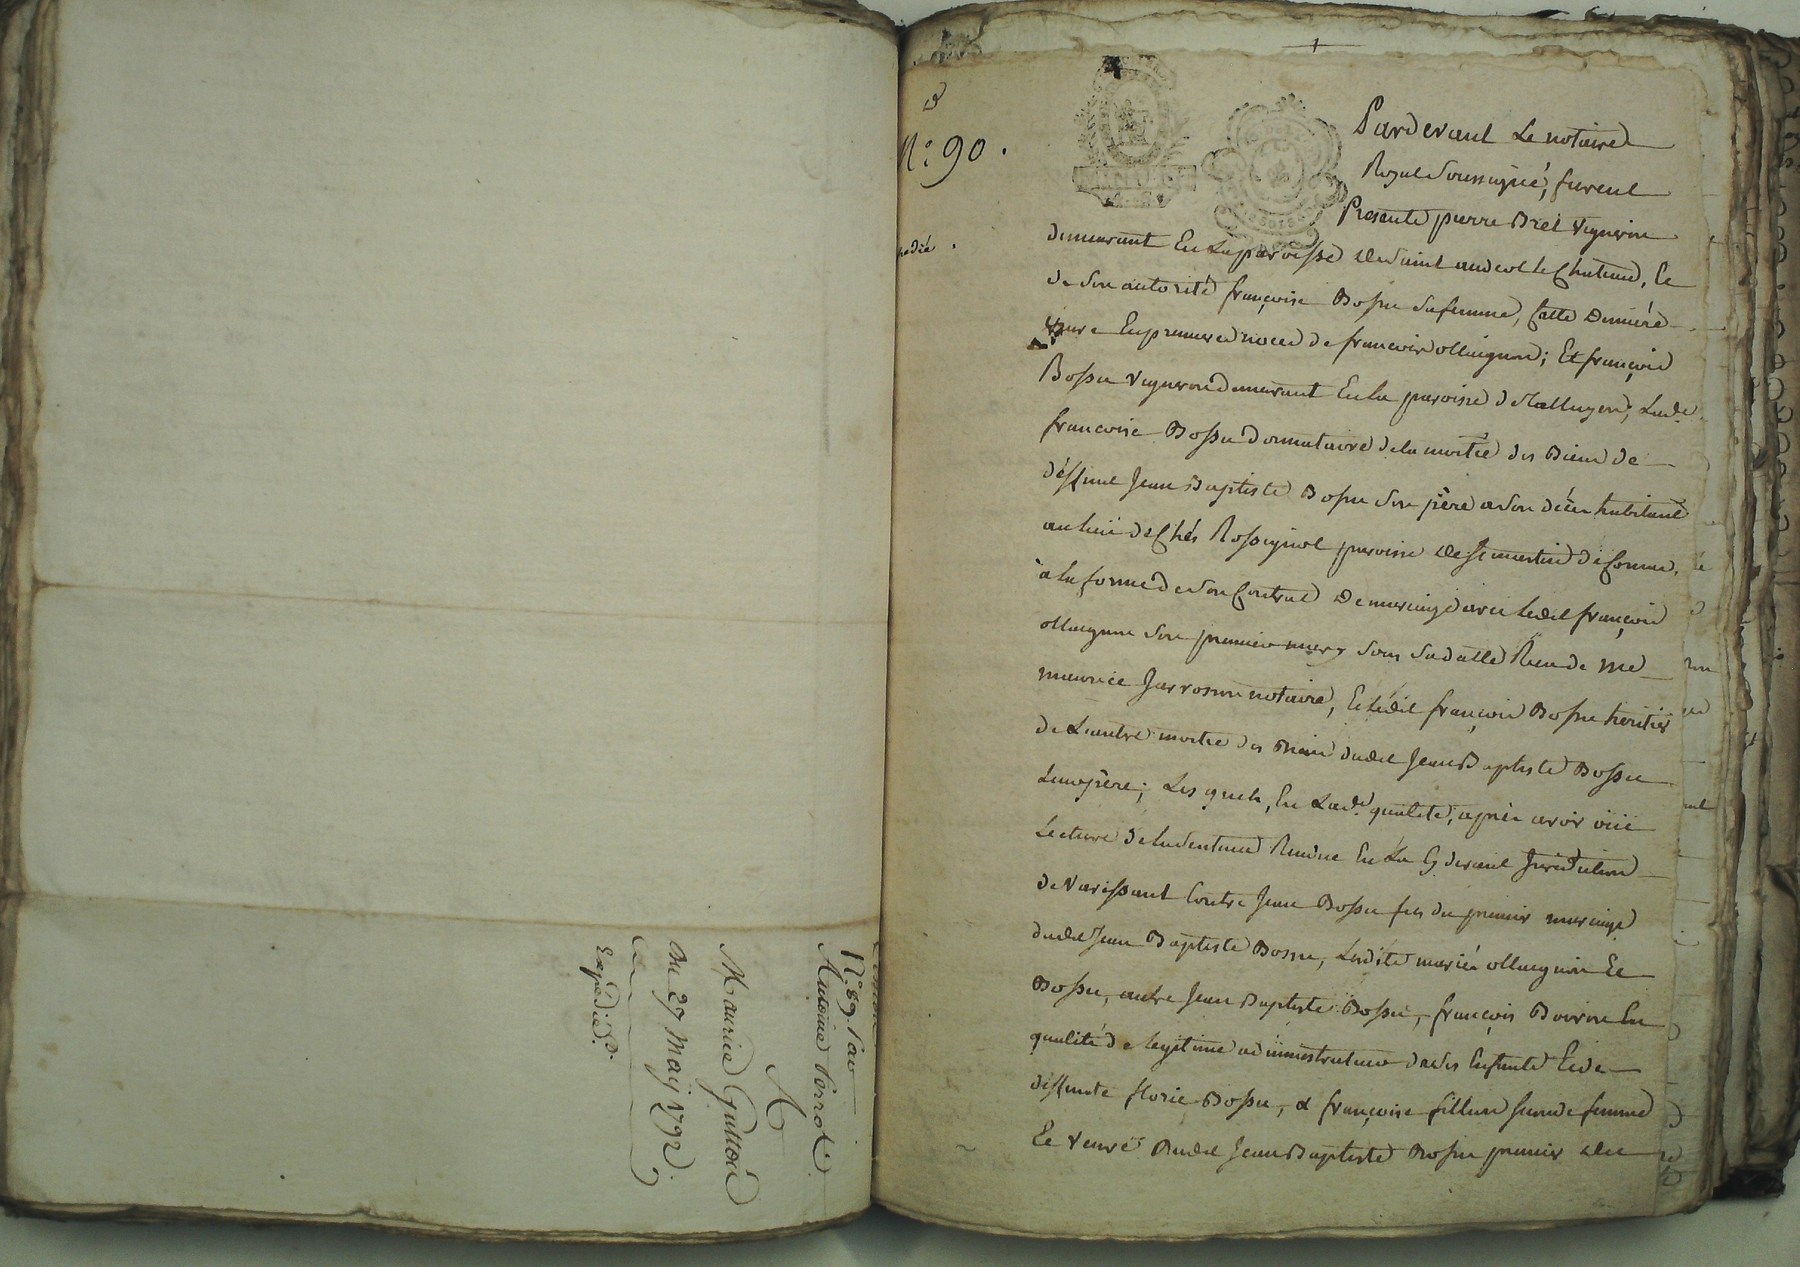 N.° 89. Par
Antoine Perrot
A
Maurice Guttou
Du 29 Maij 1792.
Expédié.
N.° 90.
Pardevant Le notaire
Royal Soussigné, furent
Presents pierre Bret Vigneron
demeurant En La paroisse de Saint andeol le Château, Et
de Son autorité françoise Bossu Sa femme, Cette Derniére
veuve En premieres noces de françois ollagnon; Et françois
Bossu vigneron demeurant En La paroisse de Tallluyers; Lad.e
françoise Bossu Donnataire de la moitié des Biens de
déffunt Jean Baptiste Bossu Son père a Son décés habitant
au lieu de Chés Rossignol paroisse de St martin de Cornas,
à la forme de Son Contrat De mariage avec Ledit françois
ollagnon Son premier mary Sous Sa datte Reçu de Me
maurice Jarrosson notaire, Et Ledit françois Bossu heritier
de L'autre moitié des Biens dudit Jean Baptiste Bossu
Leur père; Les quels, En Lad.e qualité, après avoir oüi
Lecture de la Sentence Rendue En La Cy devant Jurisdiction
de Varissant Contre Jean Bossu fils du premier mariage
dudit Jean Baptiste Bossu, Ladite mariée ollagnon Et
Bossu, autre Jean Baptiste Bossu, françois Boiron En
qualité de Legitime administrateur de Ses Enfants Et de
déffunte florie Bossu, & françoise fillion Seconde femme
Et veuve Dudit Jean Baptiste Bossu premier du